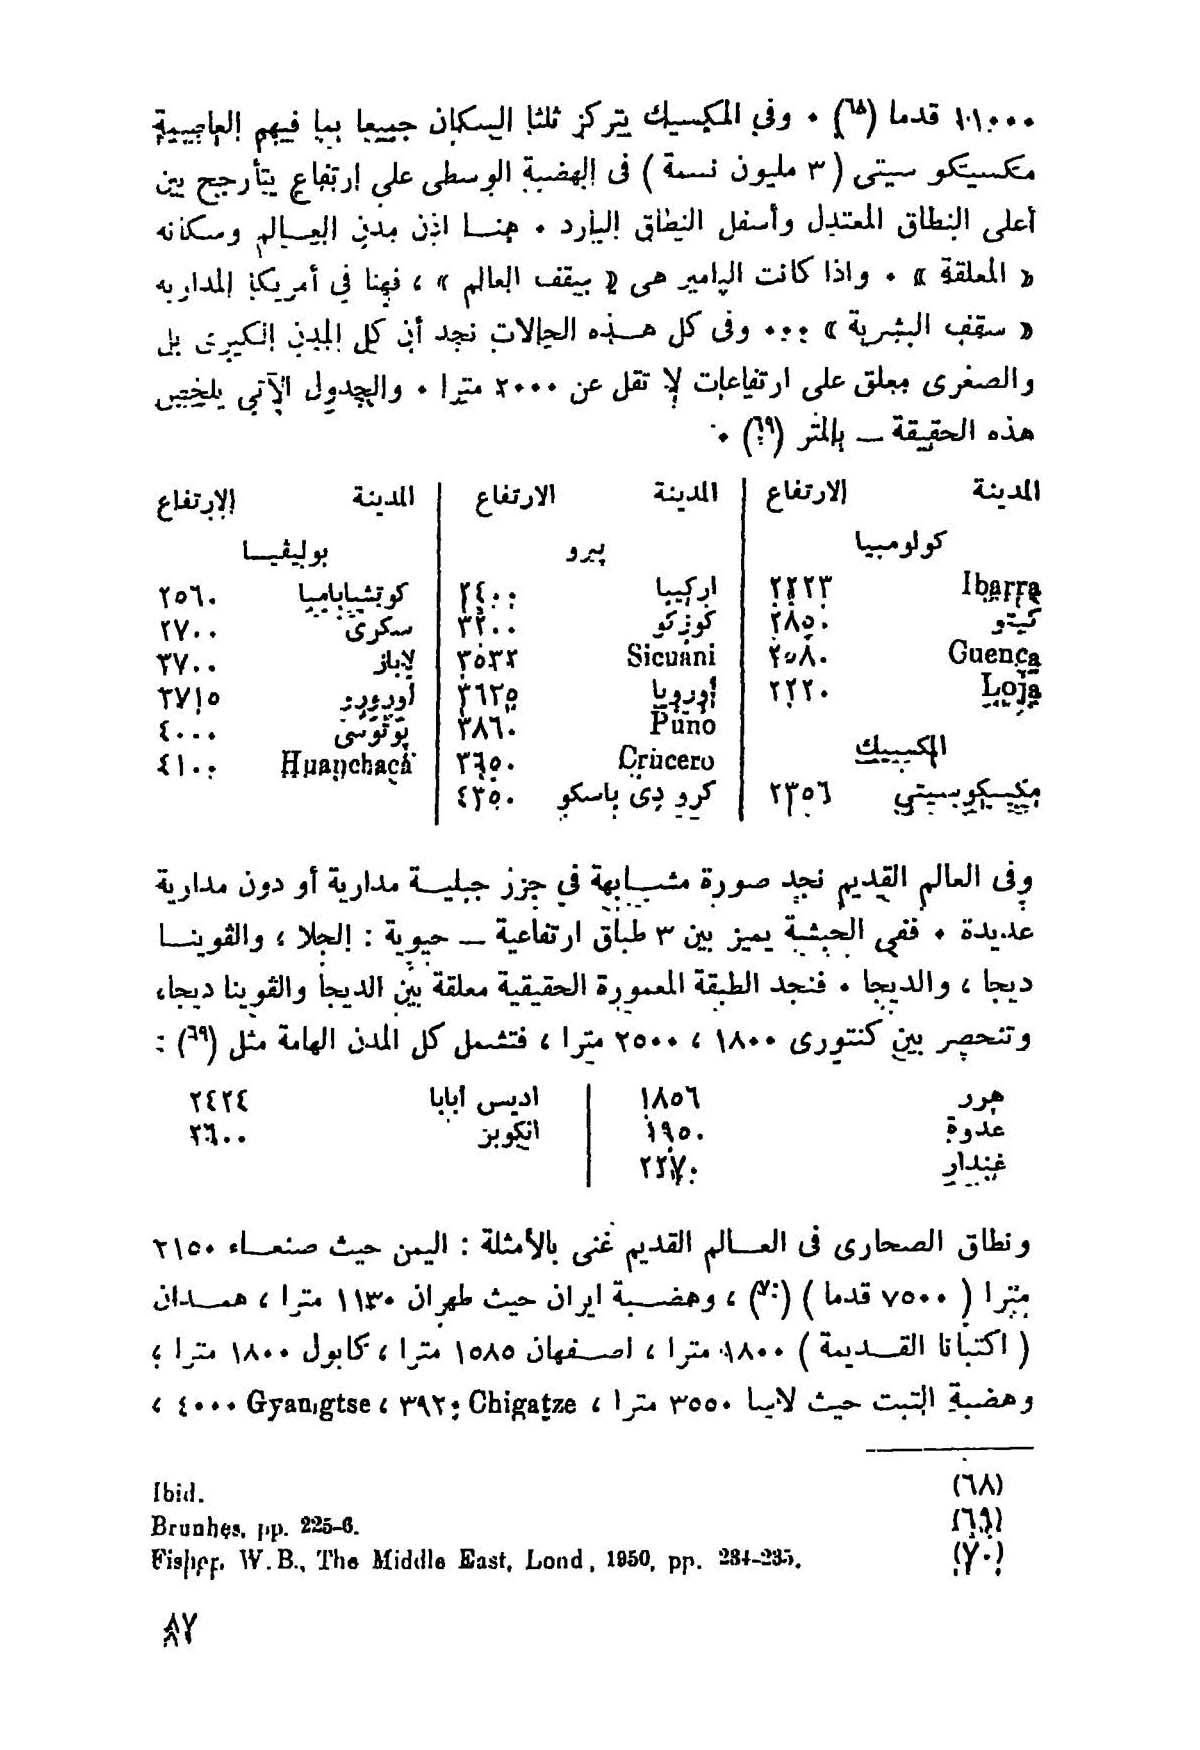 ١١٠٠٠ قدما (٦٨) ٠ وفي المكسيك يتركز ثلثا السكان جميعا بما فيهم العاصمة
مكسيكو سيتى ( ٣ مليون نسمة ) فى الهضبة الوسطى على ارتفاع يتأرجح بين
أعلى النطاق المعتدل وأسفل النطاق البارد ٠ هنا اذن مدن العالم وسكانه
« المعلقة » ٠ واذا كانت البامير هى « سقف العالم » ، فهنا في أمريكا المدارية
« سقف البشرية » ٠٠٠ وفى كل هذه الحالات نجد أن كل المدن الكبرى بل
والصغرى معلق على ارتفاعات لا تقل عن ٢٠٠٠ مترا ٠ والجدول الآتي يلخص
هذه الحقيقة ــ بالمتر (٦٩) ٠
المدينة الارتفاع المدينة الارتفاع المدينة الارتفاع
كولومبيا پيرو بوليڤيا
Ibarra ٢٢٢٣ اركيبا ٢٤٠٠ كوتشبابامبا ٢٥٦٠
كيتو ٢٨٥٠ كوزكو ٣٢٠٠ سكرى ٢٧٠٠
Guenca ٢٥٨٠ Sicuani ٣٥٣٢ لاباز ٣٧٠٠
Loja ٢٢٢٠ أورويا ٣٦٢٥ أورورو ٣٧١٥
Puno ٣٨٦٠ پوتوسى ٤٠٠٠
المكسيك Crucero ٣٦٥٠ Huanchaca ٤١٠٠
مكسيكوسيتي ٢٣٥٦ كرو دى باسكو ٤٣٥٠
وفى العالم القديم نجد صورة مشابهة في جزر جبلية مدارية أو دون مدارية
عديدة ٠ ففى الحبشة يميز بين ٣ طباق ارتفاعية ــ حيوية : الجلا ، والڤوينا
ديجا ، والديجا ٠ فنجد الطبقة المعمورة الحقيقية معلقة بين الديجا والڤوينا ديجا،
وتنحصر بين كنتورى ١٨٠٠ ، ٢٥٠٠ مترا ، فتشمل كل المدن الهامة مثل (٦٩) :
هرر ١٨٥٦ اديس أبابا ٢٤٢٤
عدوة ١٩٥٠ انكوبر ٢٦٠٠
غندار ٢٢٧٠
ونطاق الصحارى فى العالم القديم غنى بالأمثلة : اليمن حيث صنعاء ٢١٥٠
مترا ( ٧٥٠٠ قدما ) (٧٠) ، وهضبة ايران حيث طهران ١١٣٠ مترا ، همدان
( اكتبانا القديمة ) ١٨٠٠ مترا ، اصفهان ١٥٨٥ مترا ، كابول ١٨٠٠ مترا ،
وهضبة التبت حيث لاسا ٣٥٥٠ مترا ، Chigatze ٣٩٢٠ ، Gyangtse ٤٠٠٠ ،
(٦٨) Ibid.
(٦٩) Brunhes, pp. 225-6.
(٧٠) Fisher, W.B., The Middle East, Lond, 1950, pp. 234-235.
٨٧